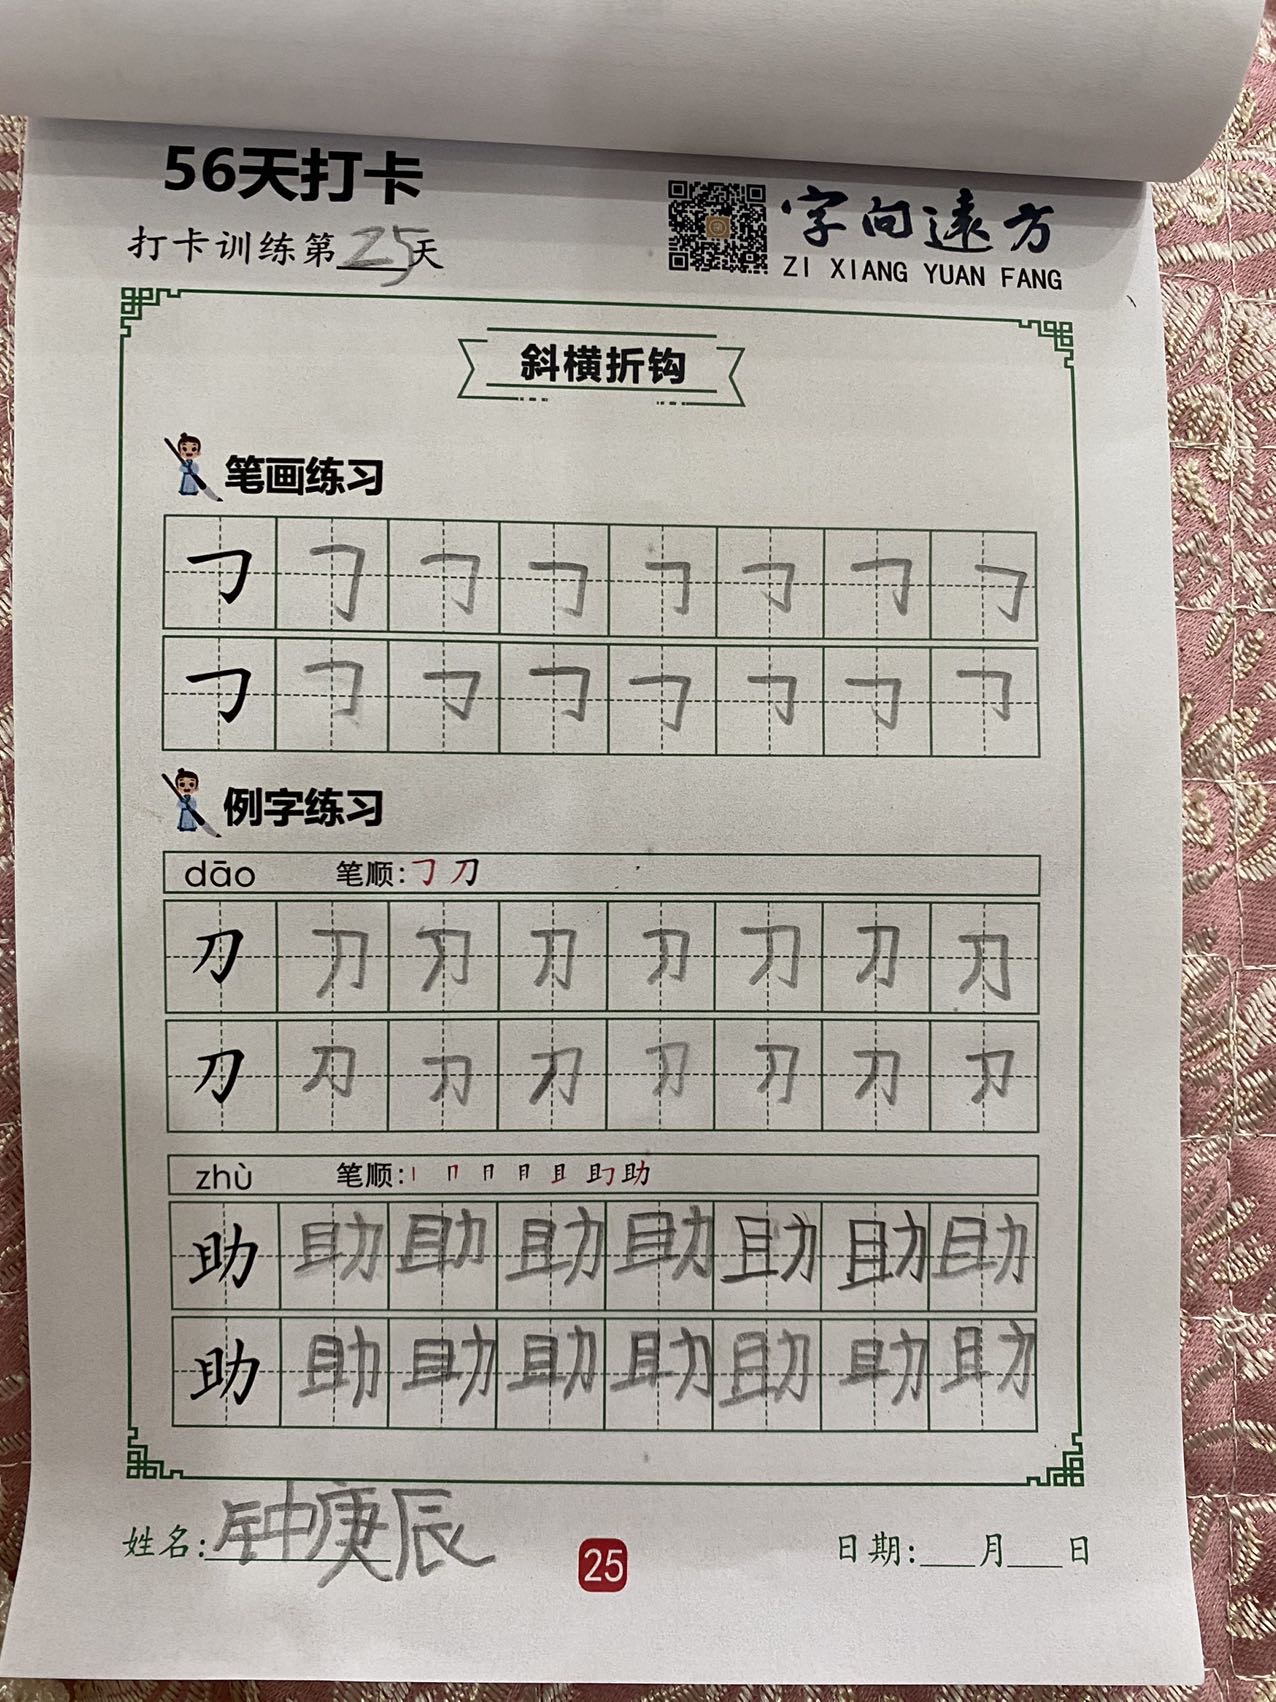 56天打卡
打卡训练第25天
字向遠方
ZI XIANG YUAN FANG
斜横折钩
笔画练习
㇆ ㇆ ㇆ ㇆ ㇆ ㇆ ㇆ ㇆
㇆ ㇆ ㇆ ㇆ ㇆ ㇆ ㇆ ㇆
例字练习
dāo 笔顺:㇆ 刀
刀 刀 刀 刀 刀 刀 刀 刀
刀 刀 刀 刀 刀 刀 刀 刀
zhù 笔顺:丨 冂 冃 月 且 助 助
助 助 助 助 助 助 助 助
助 助 助 助 助 助 助 助
姓名:钟庚辰
25
日期:___月___日